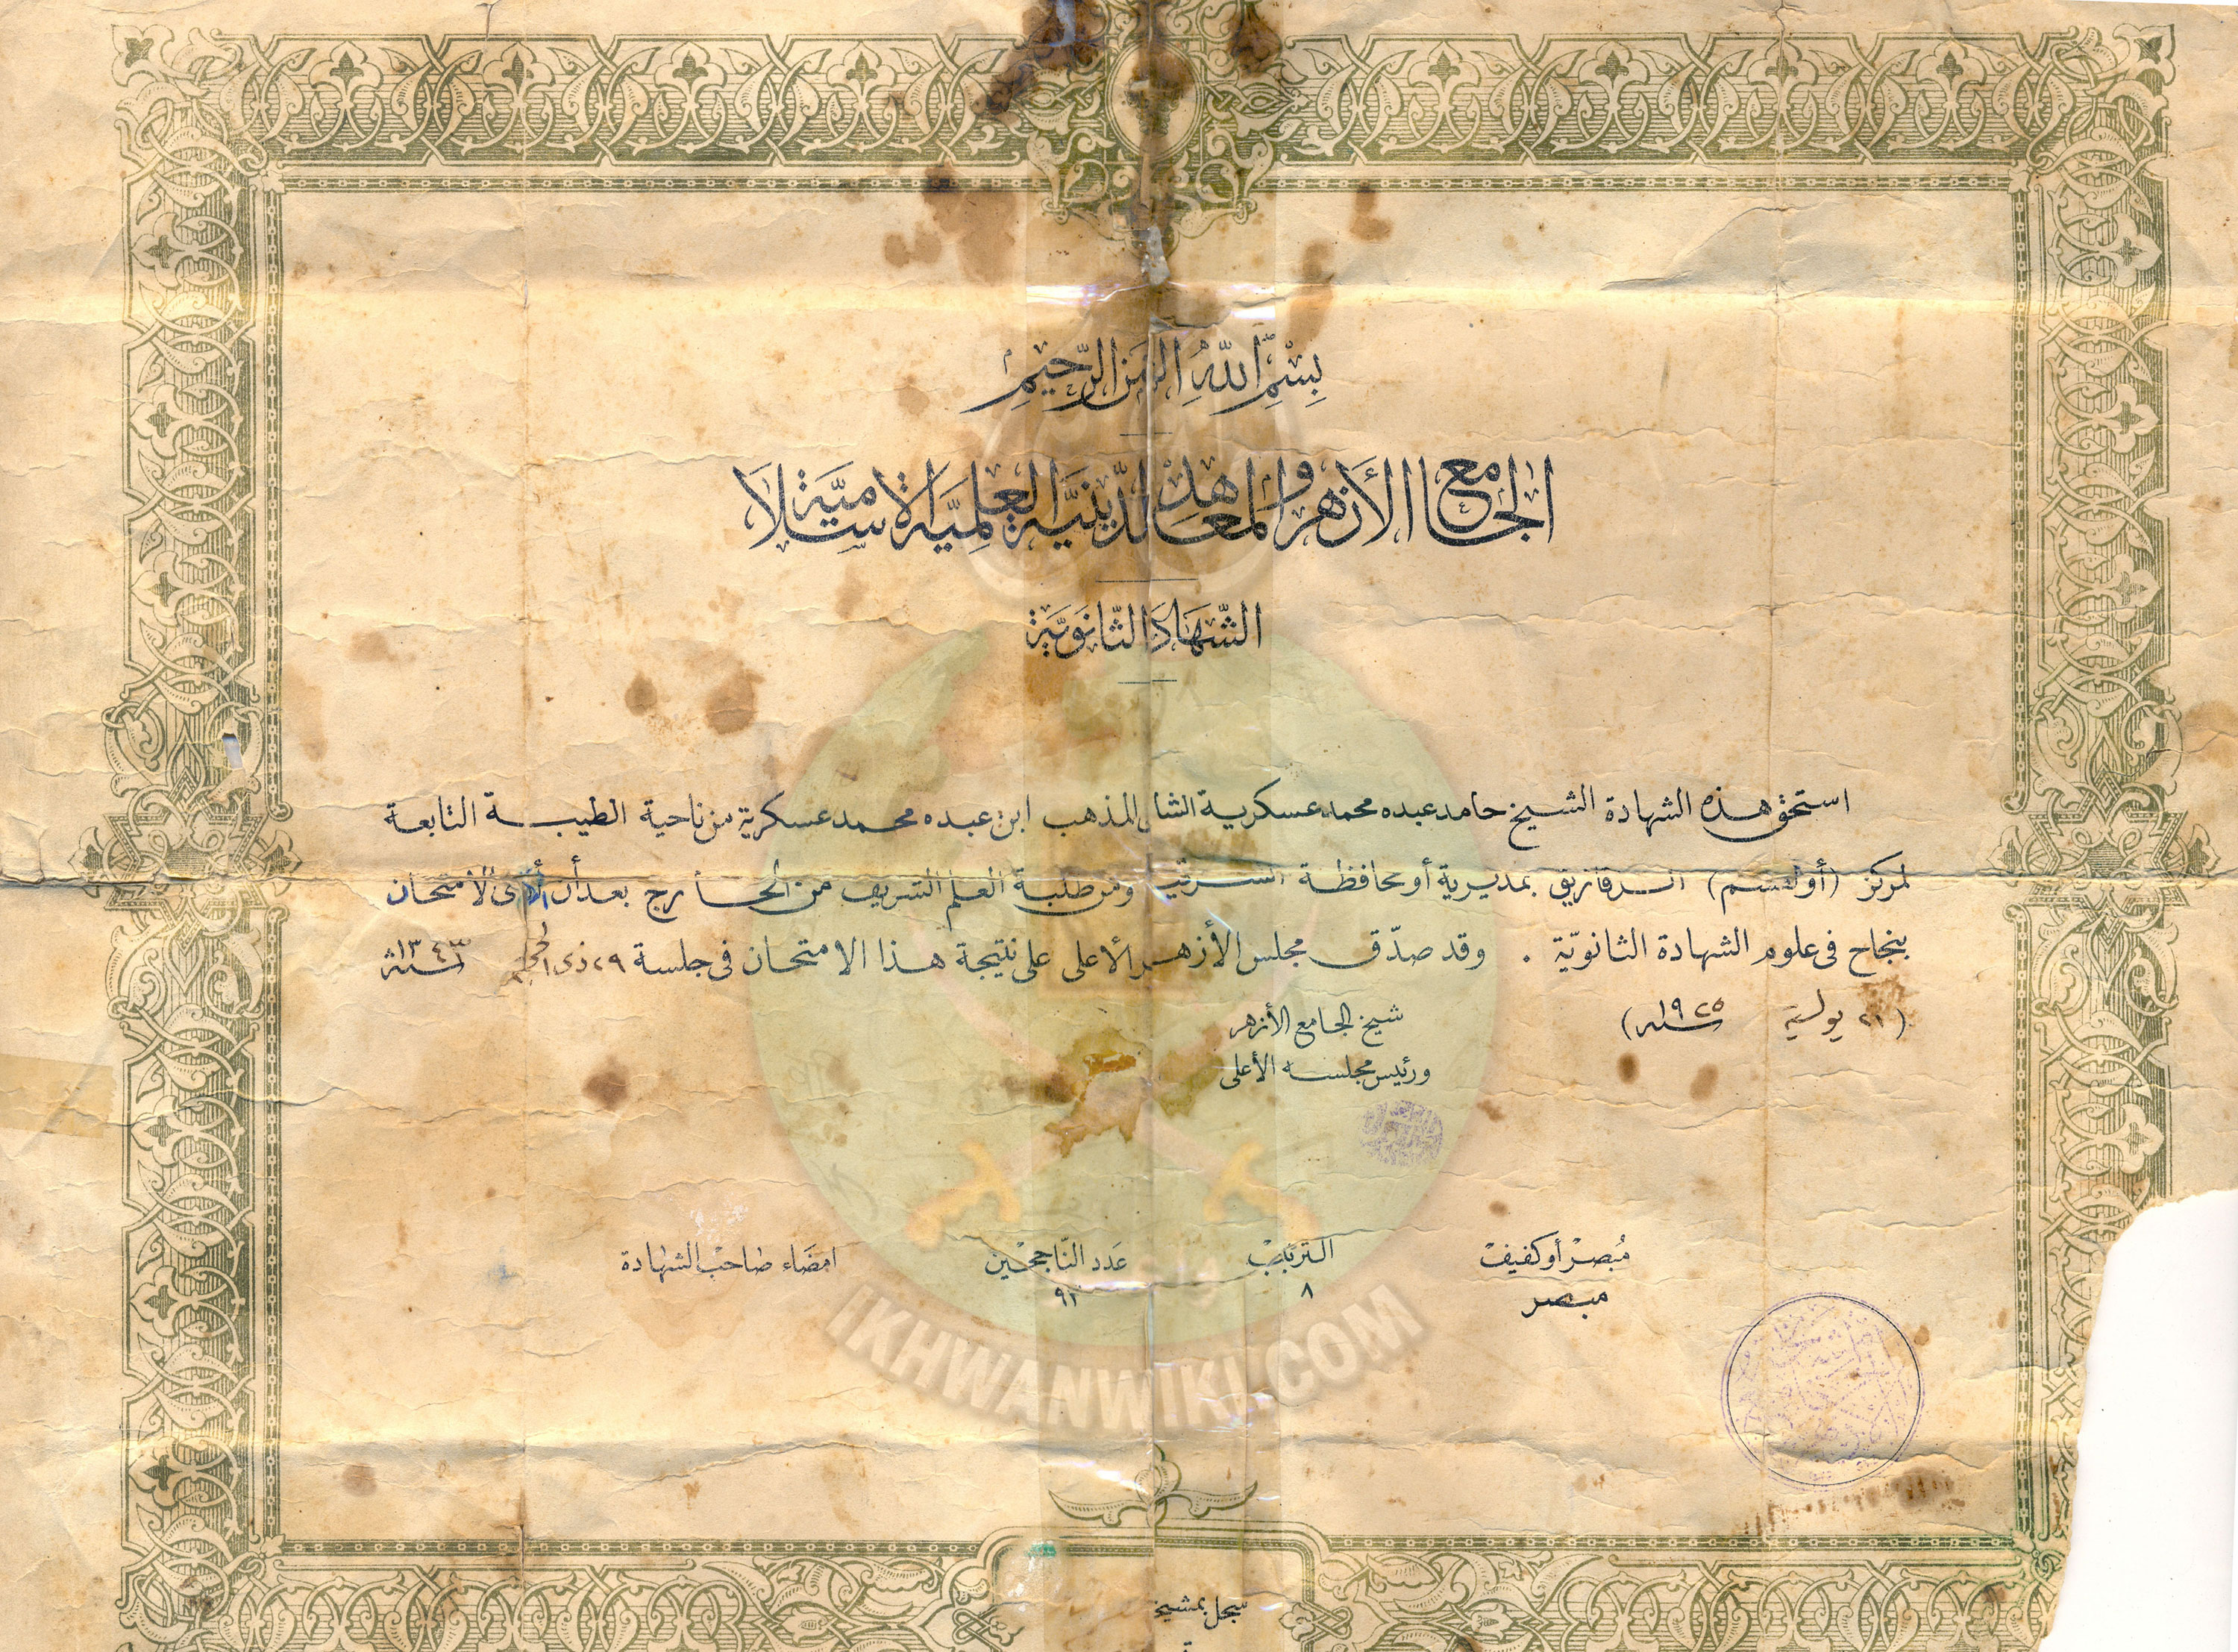 بِسْمِ اللّٰهِ الرَّحْمٰنِ الرَّحِيمِ
الجامع الأزهر والمعاهد الدّينيّة العلميّة الاسلاميّة
الشّهادة الثّانويّة
استحق هذه الشهادة الشيخ حامد عبده محمد عسكرية المذهب ابن عبده محمد عسكرية من ناحية الطيبة التابعة
لمركز (أو قسم) الزقازيق بمديرية أو محافظة الشرقية ومن طلبة العلم الشريف من الخارج بعد أن أدى الامتحان
بنجاح فى علوم الشهادة الثانويّة . وقد صدّق مجلس الأزهر الأعلى على نتيجة هذا الامتحان فى جلسة ٢٩ ذى الحجة سنة ١٣٤٣
(٢١ يولية سنة ١٩٢٥)
شيخ الجامع الأزهر
ورئيس مجلسه الأعلى
مُبصر أو كفيف الترتيب عَدد النّاجحين امضَاء صَاحب الشهادة
مبصر ٨ ٩٢
IKHWANWIKI.COM
سجل بمشيخة